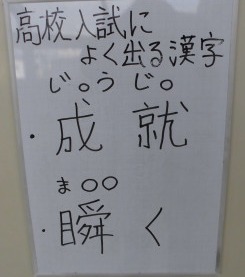 高校入試に
よく出る漢字
じ。うじ。
・成就
ま○○
・瞬く